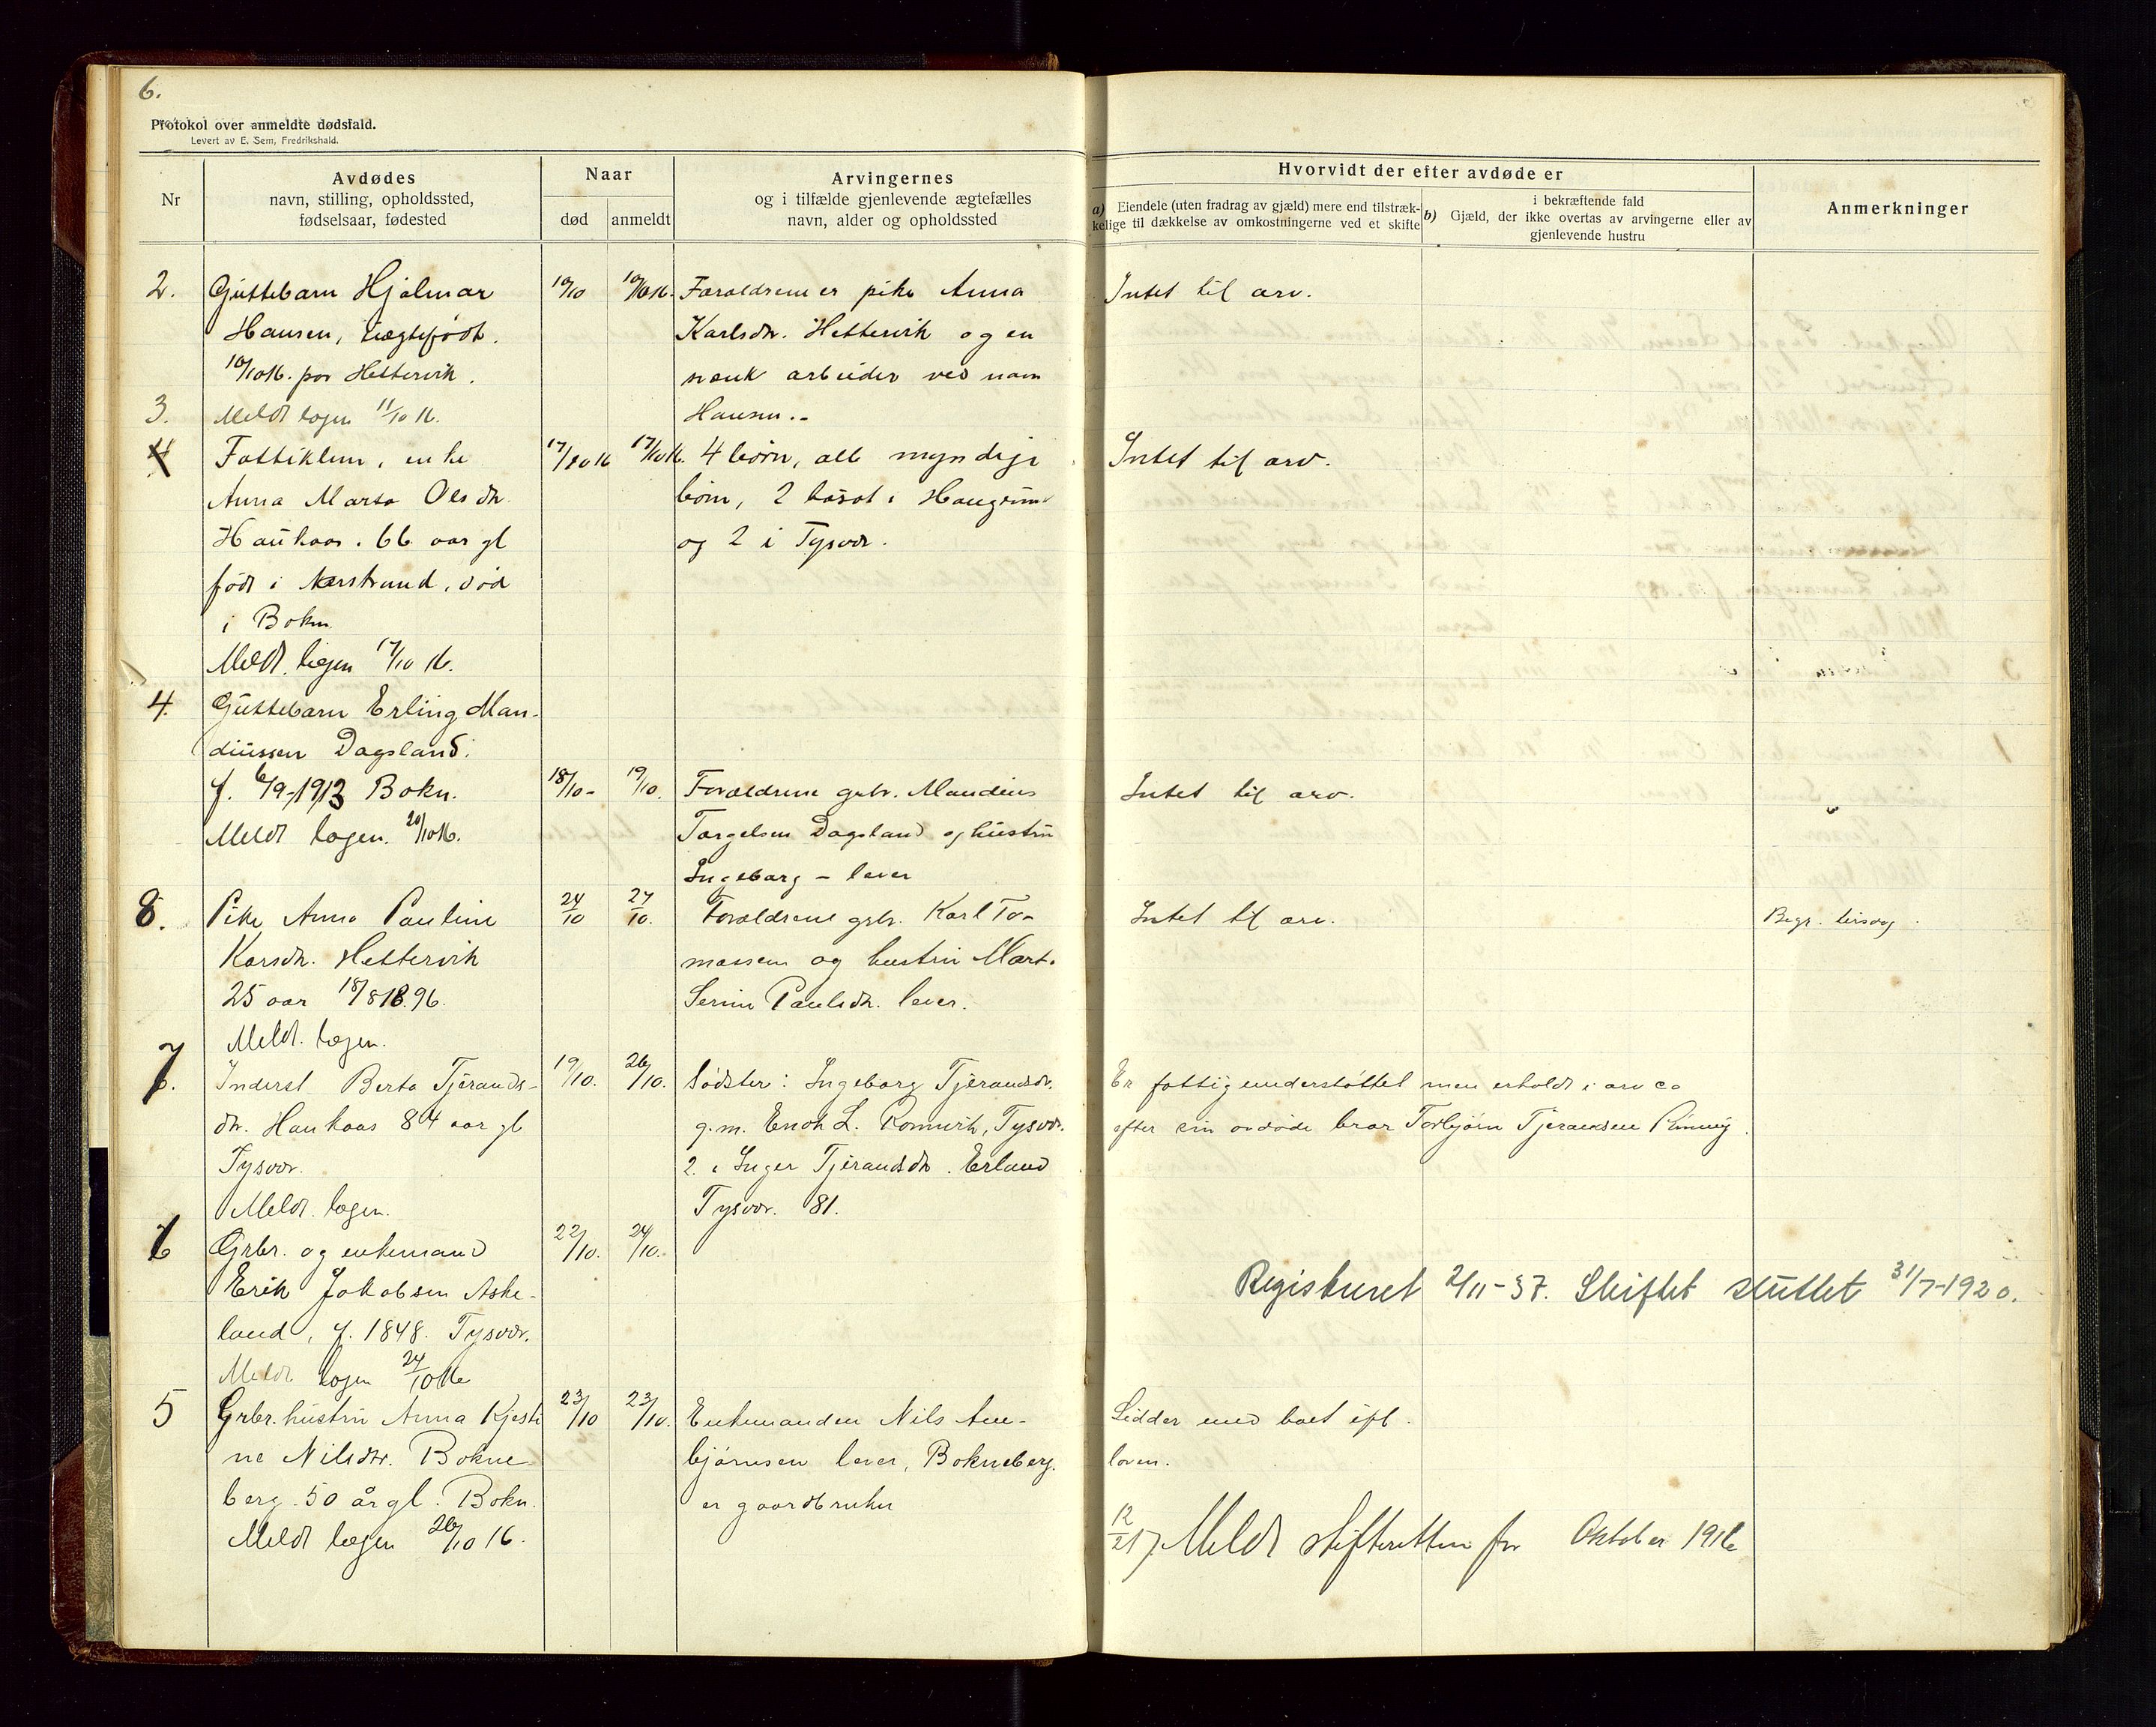 6.
Protokol over anmeldte dødsfald.
Levert av E. Sem, Fredrikshald.
Nr
Avdødes
navn, stilling, opholdssted,
fødselsaar, fødested
Naar
død
anmeldt
Arvingernes
og i tilfælde gjenlevende ægtefælles
navn, alder og opholdssted
Hvorvidt der efter avdøde er
a) Eiendele (uten fradrag av gjæld) mere end tilstræk-
kelige til dækkelse av omkostningerne ved et skifte
i bekræftende fald
b) Gjæld, der ikke overtas av arvingerne eller av
gjenlevende hustru
Anmerkninger
2. Guttebarn Hjalmar 10/10 10/10 16. Foraldrene er pike Anna Intet til arv.
Hansen, uægtefødt. Karlsdtr. Hettervik og en
10/10 16. paa Hettervik. norsk arbeider ved navn
3. Meldt lægen 11/10 16. Hansen.-
4 Fattiklem, enke 17/10 16 17/10 16. 4 børn, alle myndige Intet til arv.
Anna Marta Olsdtr. børn, 2 bosat i Haugesund
Haukaas. 66 aar gl og 2 i Tysvær.
født i Nærstrand, død
i Bokn.
Meldt lægen 17/10 16.
4. Guttebarn Erling Man-
diussen Dagsland.
f. 6/9-1913 Bokn. 18/10- 19/10. Forældrene grbr. Mandius Intet til arv.
Meldt lægen. 20/10 16. Torgelsen Dagsland og hustru
Ingeborg - lever
8. Pike Anna Pauline 24/10 27/10. Forældrene grbr. Karl To- Intet til arv. Begr. tirsdag.
Karsdtr. Hettervik massen og hustru Mart.
25 aar 18/8 1896. Serine Paulsdtr. lever.
Meldt. lægen.
7. Inderst Berta Tjerands- 19/10. 26/10. Sødster: Ingeborg Tjerandsdr. Er fattigunderstøttet men erholdt i arv ca
dtr. Haukaas 84 aar gl g.m. Enok L. Tysvær. efter sin avdøde bror Torbjørn Tjerandsen
Tysvær. 2. Inger Tjerandsdtr. Erland
Meldt. lægen. Tysvær. 81.
6 Grbr. og enkemand 22/10. 24/10.
Erik Jakobsen Aske- Registreret 2/11-37. Skiftet sluttet 31/7-1920.
land, f. 1848. Tysvær.
Meldt lægen 24/10 16
5 Grbr. hustru Anna Kjesti 23/10 23/10. Enkemanden Nils Am- Sidder med boet ifl.
ne Nilsdtr. Bokne- bjørnsen lever, Bokneberg. loven.
berg. 50 år gl. Bokn. er gaardbruker
Meldt lægen 26/10 16. 12/2 17. Meldt skifteretten for Oktober 1916